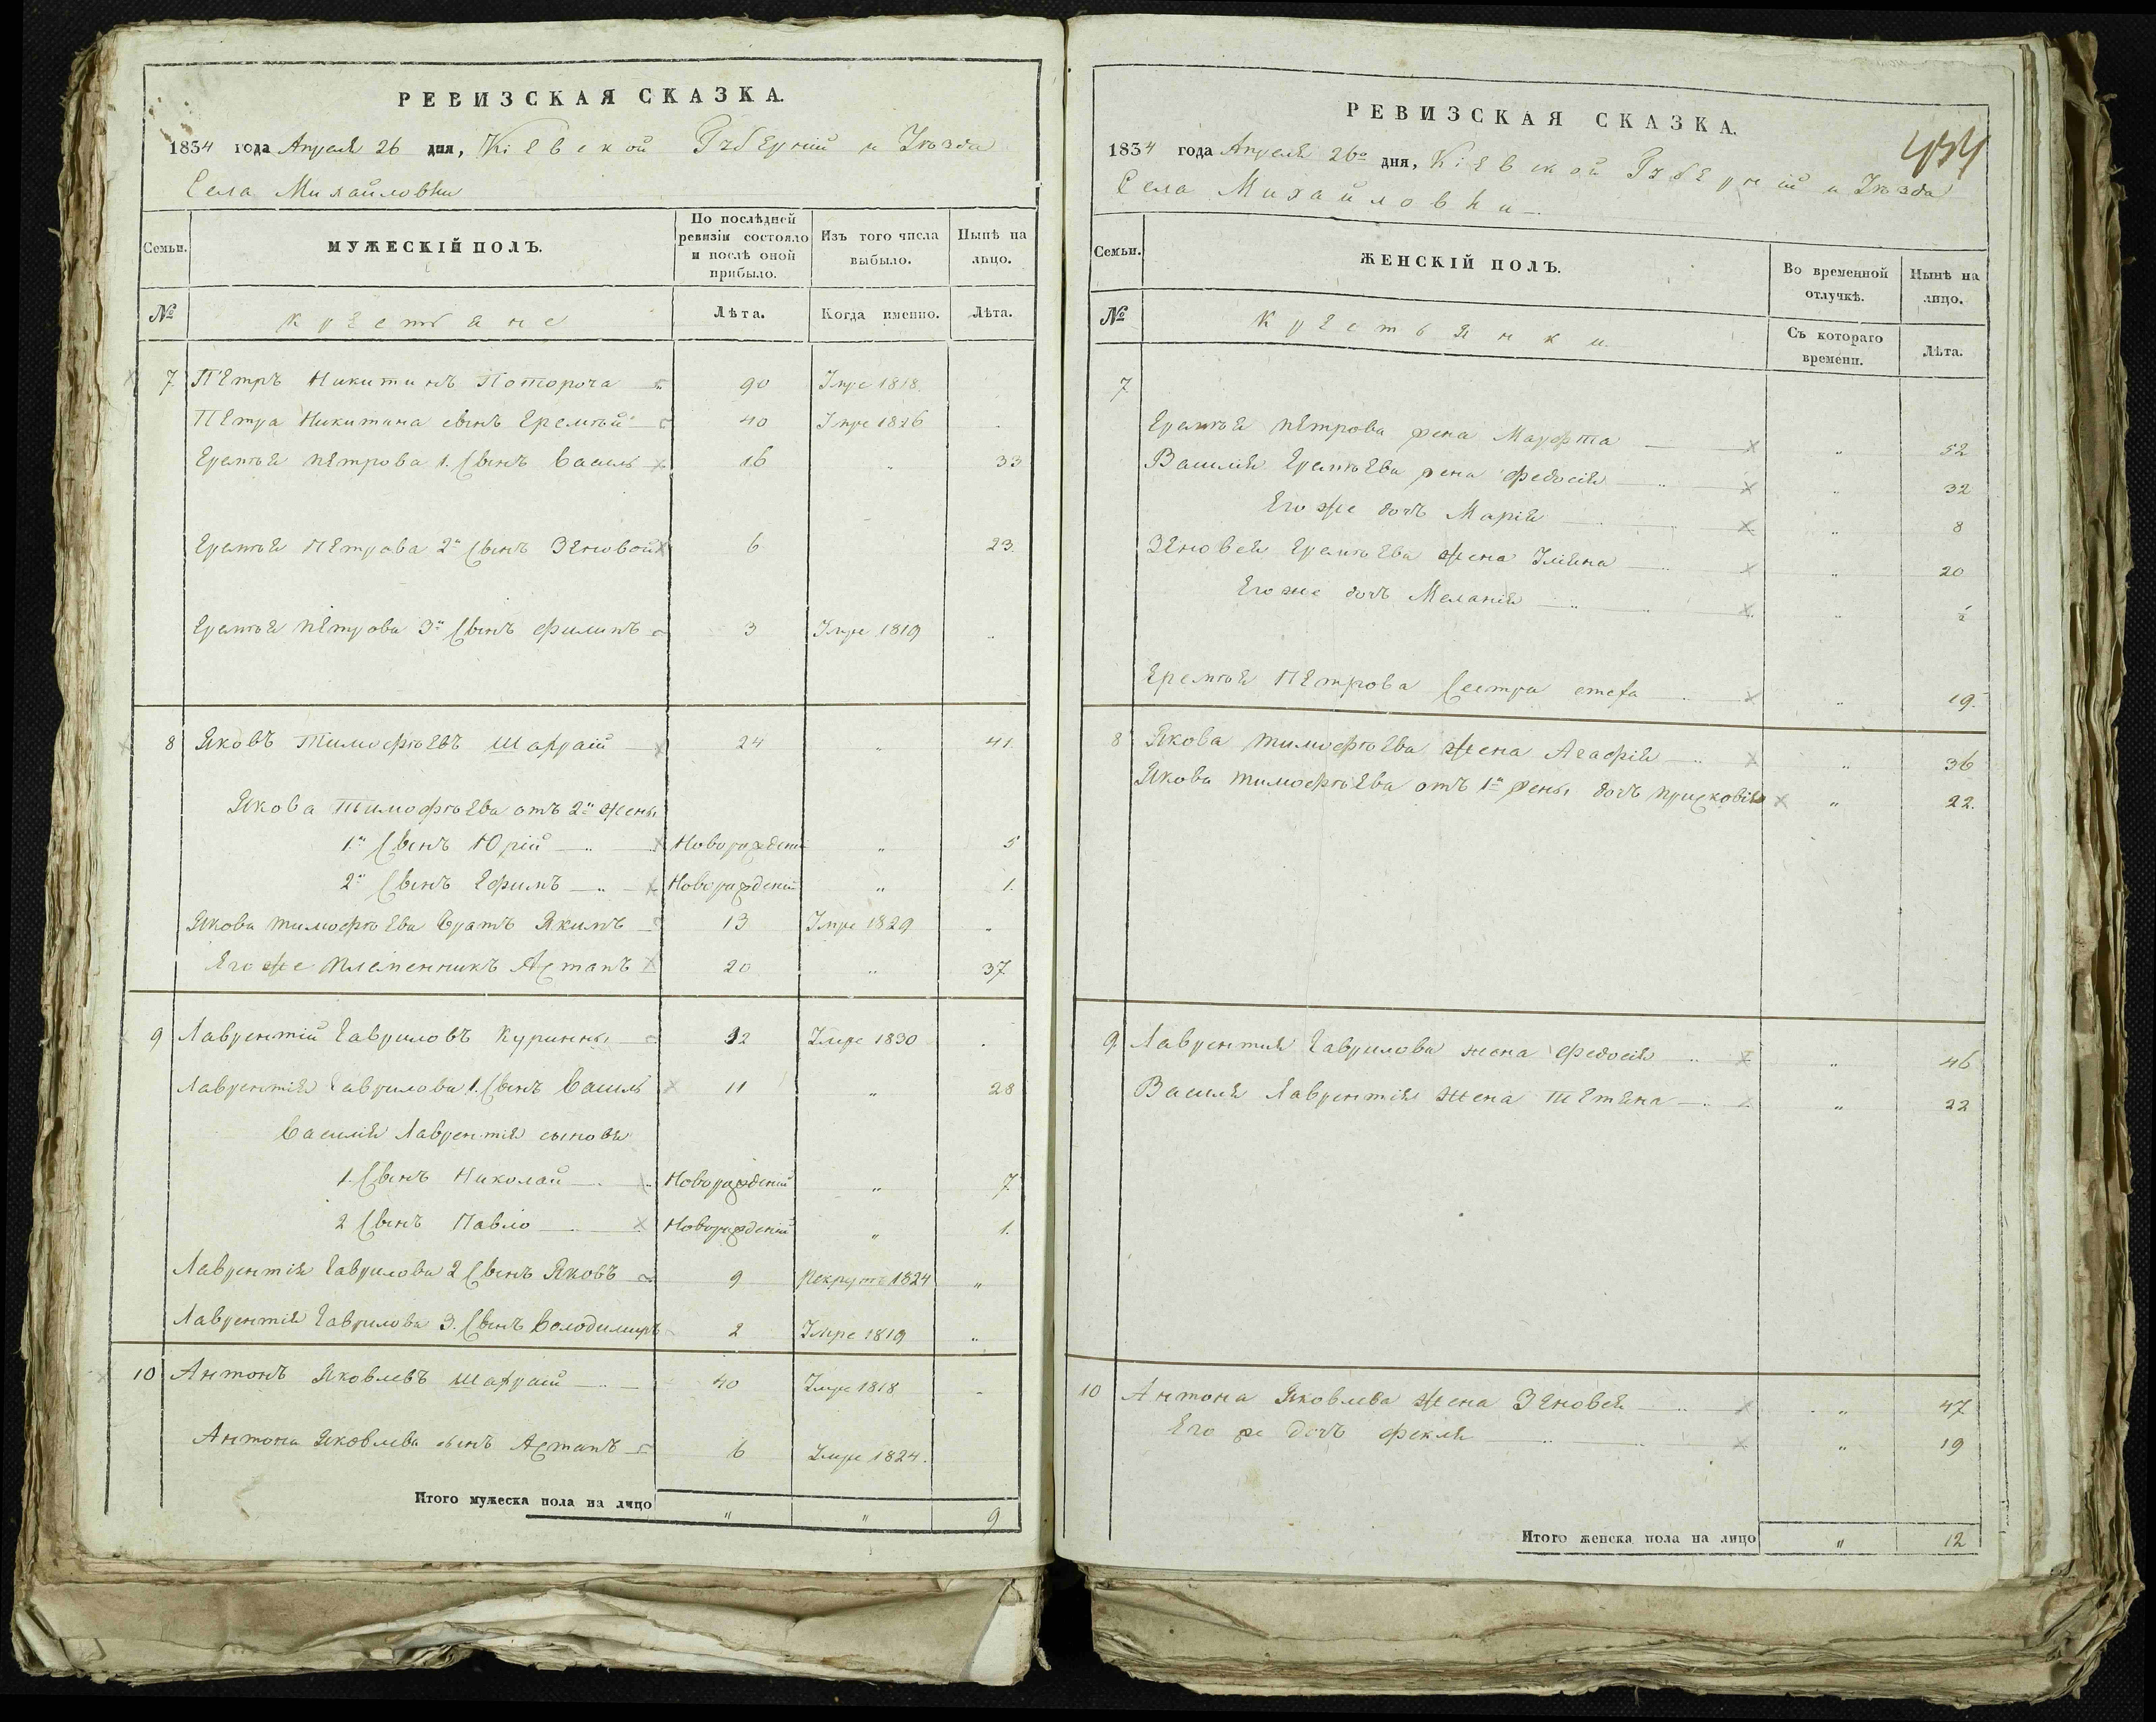 РЕВИЗСКАЯ СКАЗКА.
1834 года Апреля 26 дня, Кіевской Губерніи и Уѣзда
Села Михайловки
Семьи.
МУЖЕСКІЙ ПОЛЪ.
По послѣдней ревизіи состояло и послѣ оной прибыло.
Изъ того числа выбыло.
Нынѣ на лицо.
№
Крестьяне
Лѣта.
Когда именно.
Лѣта.
7 Петръ Никитинъ Потороча 90 Умре 1818.
Петра Никитина сынъ Еремѣй 40 Умре 1826
Еремѣя Петрова 1. Сынъ Василь 16 " 33
Еремѣя Петрова 2й Сынъ Зѣновой 6 23.
Еремѣя Петрова 3й Сынъ Филипъ 3 Умре 1819 "
8 Яковъ Тимофѣевъ Шафрай 24 " 41.
Якова Тимофѣева отъ 2й жены
1й Сынъ Юрій Новорожденій " 5
2й Сынъ Ефимъ Новорожденій " 1.
Якова Тимофѣева братъ Якимъ 13 Умре 1829 "
Его же племенникъ Астапъ 20 " 37
9 Лаврентій Гавриловъ Куринны 32 Умре 1830
Лаврентія Гаврилова 1. Сынъ Василь 11 " 28
Василія Лаврентія сыновя
1. Сынъ Николай Новорожденій " 7.
2 Сынъ Павло Новорожденій " 1.
Лаврентія Гаврилова 2 Сынъ Яковъ 9 рекрутъ 1824 "
Лаврентія Гаврилова 3. Сынъ Володимиръ 2 Умре 1819 "
10 Антонъ Яковлевъ Шафрай 40 Умре 1818
Антона Яковлева сынъ Астапъ 6 Умре 1824.
Итого мужеска пола на лицо " " 9
РЕВИЗСКАЯ СКАЗКА.
434
1834 года Апреля 26го дня, Кіевской Губерніи и Уѣзда
Села Михайловки
Семьи.
ЖЕНСКІЙ ПОЛЪ.
Во временной отлучкѣ.
Нынѣ на лицо.
№
Крестьянки.
Съ котораго времени.
Лѣта.
7
Еремѣя Петрова жена Марфта " 52
Василія Еремѣева жена Федосія " 32
Его же дочъ Марія " 8
Зѣновея Еремѣева жена Уліяна " 20
Его же дочъ Меланія "
Еремѣя Петрова Сестра " 19.
8 Якова Тимофѣева жена Агафія " 36
Якова Тимофѣева отъ 1й жены дочъ Присковія " 22.
9. Лаврентия Гаврилова жена Федосія " 46
Василя Лаврентія жена Тетяна " 22
10 Антона Яковлева жена Зѣновея " 47
Его же дочъ Фекля " 19
Итого женска пола на лицо " 12